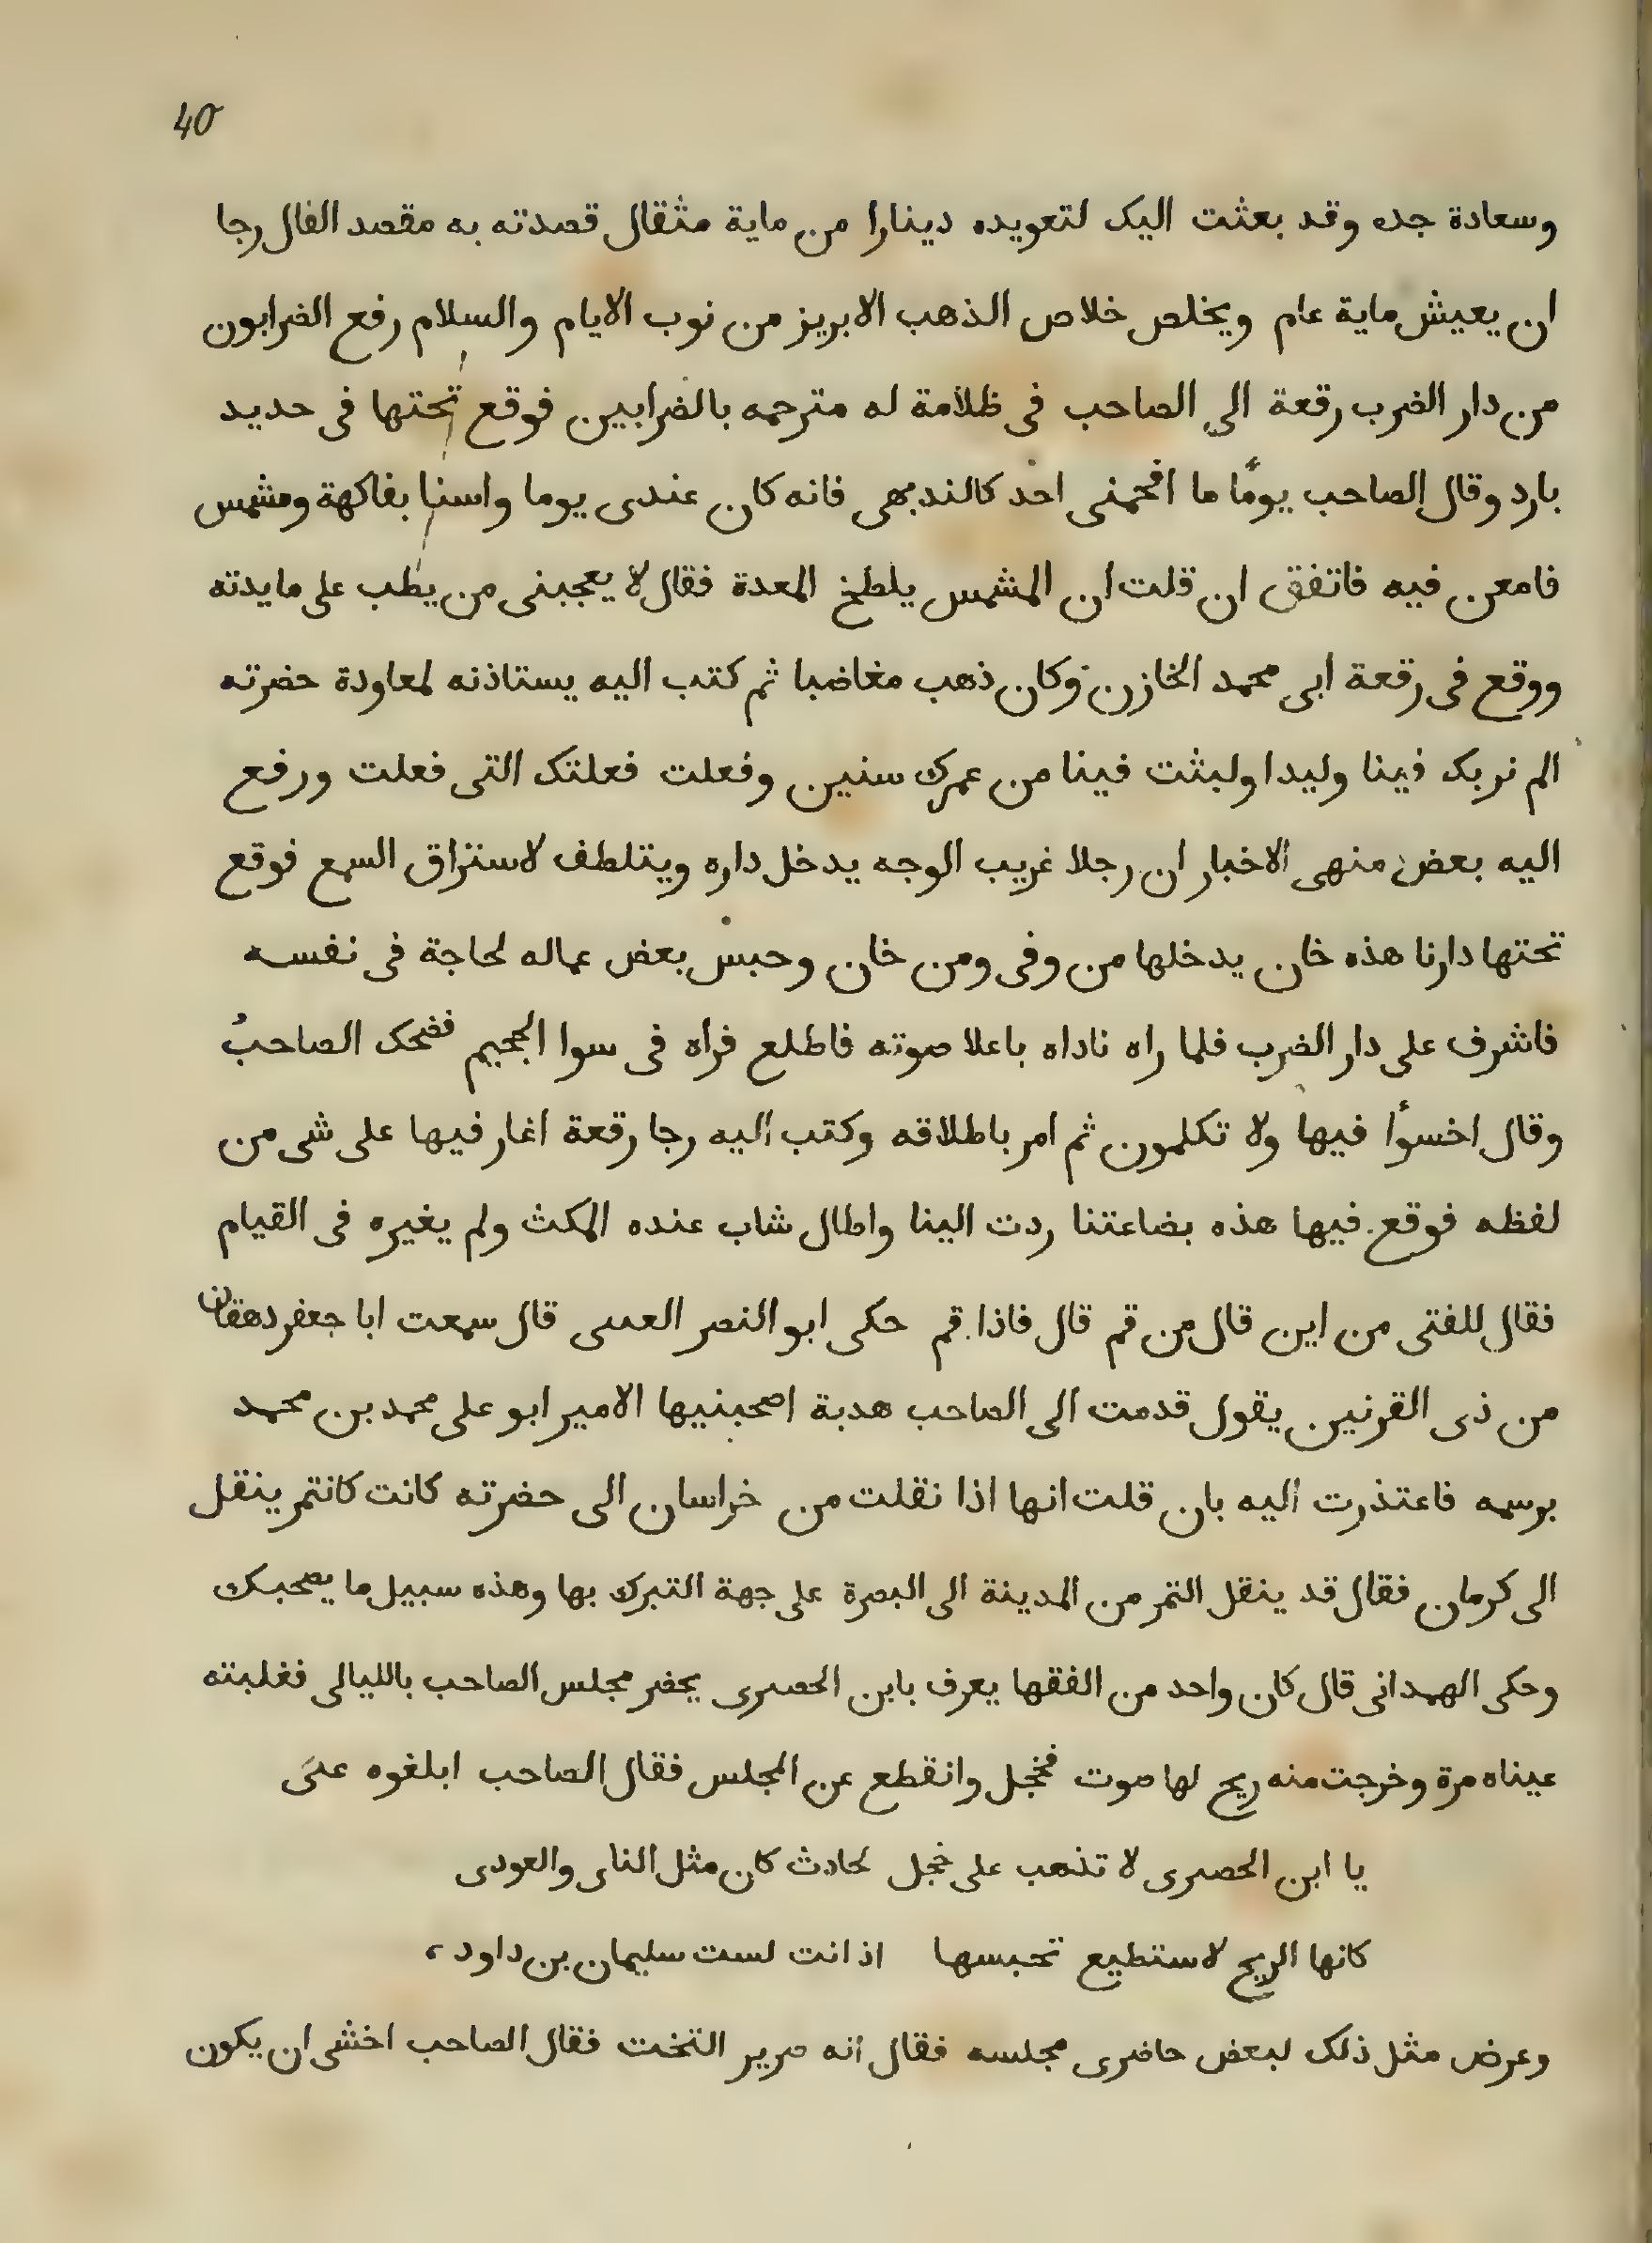 40
وسعادة جده وقد بعثت اليك لتعويده دينارا من ماية مثقال قصدته به مقصد الفال رجا
ان يعيش ماية عام ويخلص خلاص الذهب الابريز من نوب الايام والسلام رفع الضرابون
من دار الضرب رقعة الى الصاحب فى ظلامة له مترجمه بالضرابيين فوقع تحتها فى حديد
بارد وقال الصاحب يومًا ما افحمنى احد كالندبهى فانه كان عندى يوما واسنا بفاكهة ومشمس
فامعن فيه فاتفق ان قلت ان المشمس يلطخ المعدة فقال لا يعجبنى من يطب على مايدته
ووقع فى رقعة ابى محمد الخازن وكان ذهب مغاضبا ثم كتب اليه يستاذنه لمعاودة حضرته
الم نربك فينا وليدا ولبثت فينا من عمرك سنين وفعلت فعلتك التى فعلت ورفع
اليه بعض منهى الاخبار ان رجلا غريب الوجه يدخل داره ويتلطف لاستراق السمع فوقع
تحتها دارنا هذه خان يدخلها من وفى ومن خان وحبس بعض عماله لحاجة فى نفسه
فاشرف على دار الضرب فلما راه ناداه باعلا صوته فاطلع فرأه فى سوا الجحيم فضحك الصاحبُ
وقال اخسوأ فيها ولا تكلمون ثم امر باطلاقه وكتب اليه رجا رقعة اغار فيها على شى من
لفظه فوقع فيها هذه بضاعتنا ردت الينا واطال شاب عنده المكث ولم يغيره فى القيام
فقال للفتى من اين قال من قم قال فاذا قم حكى ابو النصر قال سمعت ابا جعفر دهقان
من ذى القرنين يقول قدمت الى الصاحب هدبة اصحبنيها الامير ابو على محمد بن محمد
برسمه فاعتذرت اليه بان قلت انها اذا نقلت من خراسان الى حضرته كانت كانتمر ينقل
الى كرمان فقال قد ينقل التمر من المدينة الى البصرة على جهة التبرك بها وهذه سبيل ما يصحبك
وحكى الهمدانى قال كان واحد من الفقها يعرف بابن الحصىرى يحضر مجلس الصاحب بالليالى فغلبته
عيناه مرة وخرجت منه ريح لها صوت فخجل وانقطع عن المجلس فقال الصاحب ابلغوه عنى
يا ابن الحصىرى لا تذهب على خجل لحادث كان مثل الناى والعودى
كانها الريح لا ستطيع تحبسها اذ انت لست سليمان بن داود،
وعرض مثل ذلك لبعض حاضرى مجلسه فقال انه صرير التخت فقال الصاحب اخشى ان يكون